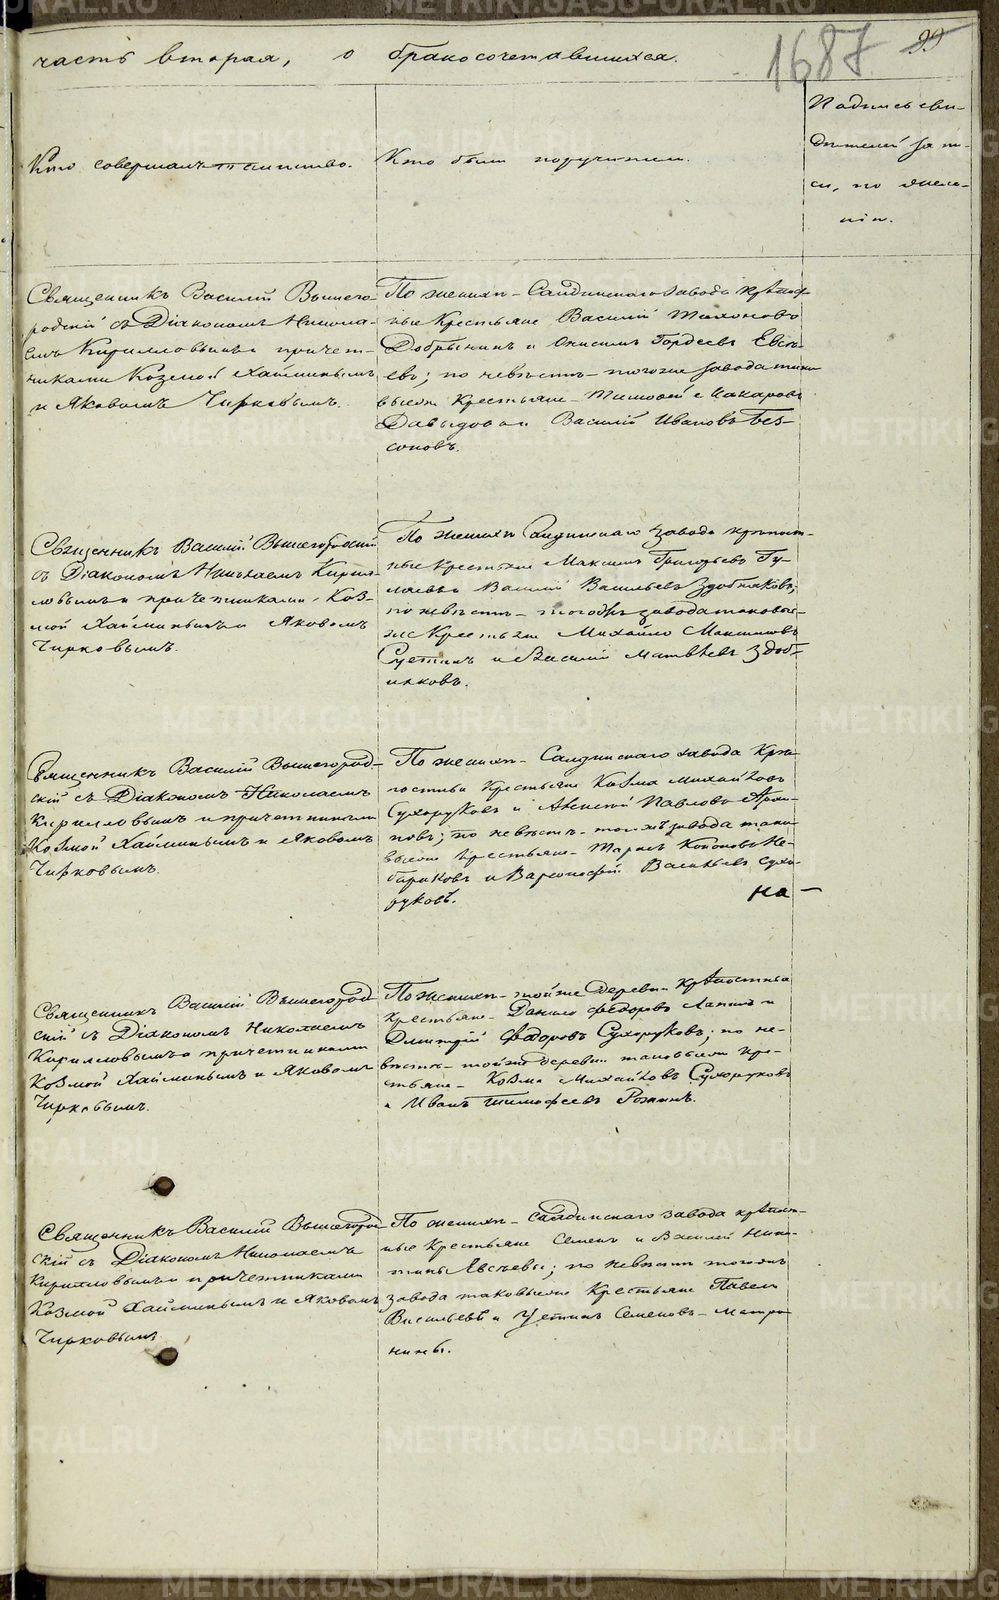 часть вторая, о бракосочетавшихся.
1687
99
Кто совершалъ таинство.
Кто были поручители.
Подпись сви-
дѣтелей запи-
си, по жела-
нію.
Священникъ Василій Вышего-
родскій съ Діакономъ Никола-
емъ Кирилловымъ и причет-
никами Козмой Хайминымъ
и Яковомъ Чирковымъ.
По женихѣ - Салдинскаго завода крѣпост-
ные Крестьяне Василій
Добрынинъ и Онисимъ Гордеевъ Евсѣ-
евъ; по невѣстѣ - тогоже завода тако-
выеже Крестьяне - Тимофей Макаровъ
Давыдовъ и Василій Ивановъ Без-
соновъ.
Священникъ Василій Вышегородскій
съ Діакономъ Николаемъ Кирил-
ловымъ и причетниками Коз-
мой Хайминымъ и Яковомъ
Чирковымъ.
По женихѣ Салдинскаго завода крѣпост-
ные Крестьяне Максимъ Григорьевъ Гу-
ляевъ и Василій Васильевъ Здобняковъ;
по невѣстѣ - тогожъ завода таковые-
же Крестьяне Михайло Максимовъ
Суетинъ и Василій Матвѣевъ Здоб-
няковъ.
Священникъ Василій Вышегород-
скій съ Діакономъ Николаемъ
Кирилловымъ и причетниками
Козмой Хайминымъ и Яковомъ
Чирковымъ.
По женихѣ - Салдинскаго завода Крѣ-
постные Крестьяне Козма Михайловъ
Сухоруковъ и Алексѣй Павловъ Архи-
повъ; по невѣстѣ - тогожъ завода тако-
выеже Крестьяне - Тарасъ Кононовъ Не-
бариковъ и Варсонофій Васильевъ Сухо-
руковъ.
на -
Священникъ Василій Вышегород-
скій съ Діакономъ Николаемъ
Кирилловымъ и причетниками
Козмой Хайминымъ и Яковомъ
Чирковымъ.
По женихѣ - тойже деревни крѣпостные
крестьяне - Данило Федоровъ Лапинъ и
Дмитрій Федоровъ Сухоруковъ; по не-
вѣстѣ - тойже деревни таковыеже кре-
стьяне - Козма Михайловъ Сухоруковъ
и Иванъ Тимофеевъ Рожинъ.
Священникъ Василій Вышегород-
скій съ Діакономъ Николаемъ
Кирилловымъ и причетниками
Козмой Хайминымъ и Яковомъ
Чирковымъ
По женихѣ - Салдинскаго завода крѣпост-
ные Крестьяне Семенъ и Василій Ники-
тины Евсѣевы; по невѣстѣ тогожъ
завода таковыеже Крестьяне Павелъ
Васильевъ и Устинъ Семеновъ - Матро-
нины.
METRIKI.GASO-URAL.RU